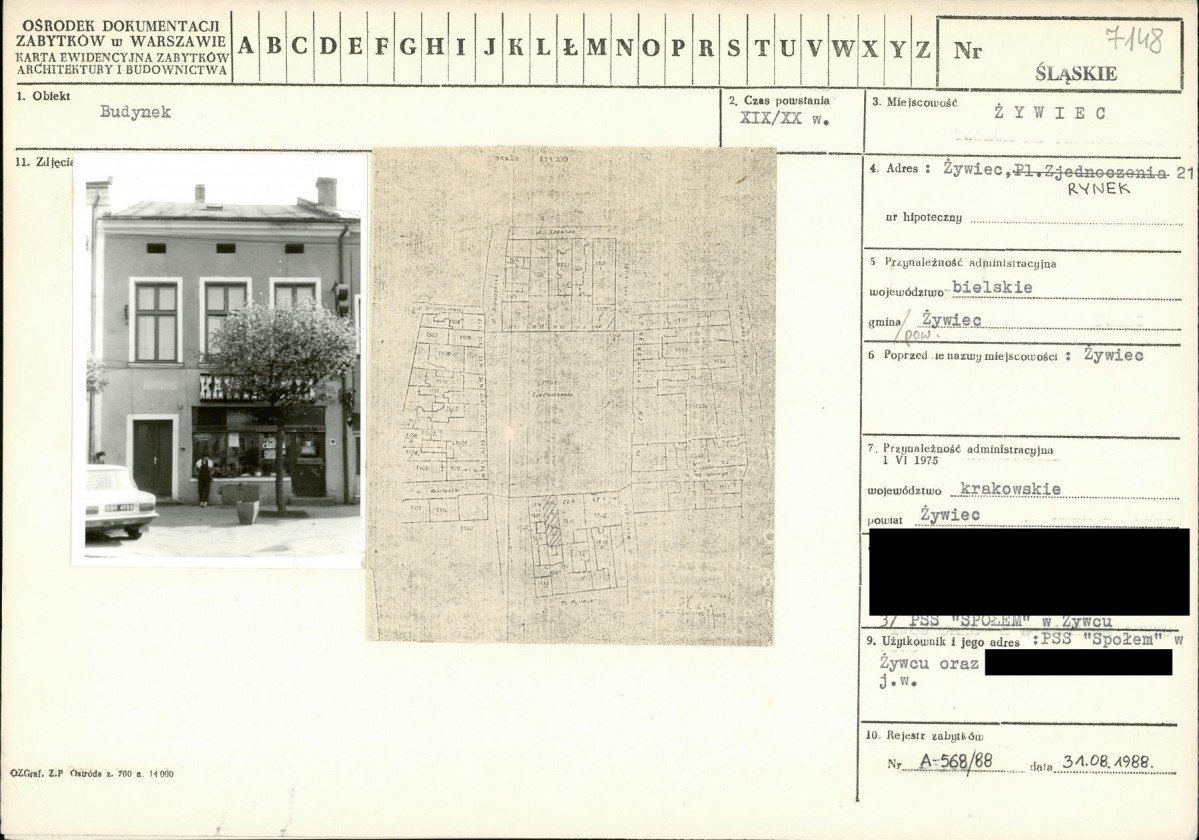 OŚRODEK DOKUMENTACJI
ZABYTKÓW w WARSZAWIE
KARTA EWIDENCYJNA ZABYTKÓW
ARCHITEKTURY I BUDOWNICTWA
A B C D E F G H I J K L Ł M N O P R S T U V W X Y Z
Nr 7148
ŚLĄSKIE
1. Obiekt
Budynek
2. Czas powstania
XIX/XX w.
3. Miejscowość
ŻYWIEC
11. Zdjęcia
skala 1:1000
Zjednoczenia
4. Adres : Żywiec, Pl.Zjednoczenia 21
RYNEK
nr hipoteczny
5 Przynależność administracyjna
województwo bielskie
gmina/ Żywiec
pow.
6 Poprzednie nazwy miejscowości : Żywiec
7. Przynależność administracyjna
1 VI 1975
województwo krakowskie
powiat Żywiec
3/ PSS "SPOŁEM" w Żywcu
9. Użytkownik i jego adres :PSS "Społem" w
Żywcu oraz
j.w.
10. Rejestr zabytków
Nr A-568/88 data 31.08.1988.
OZGraf. Z.P Ostróda z. 700 n. 14000